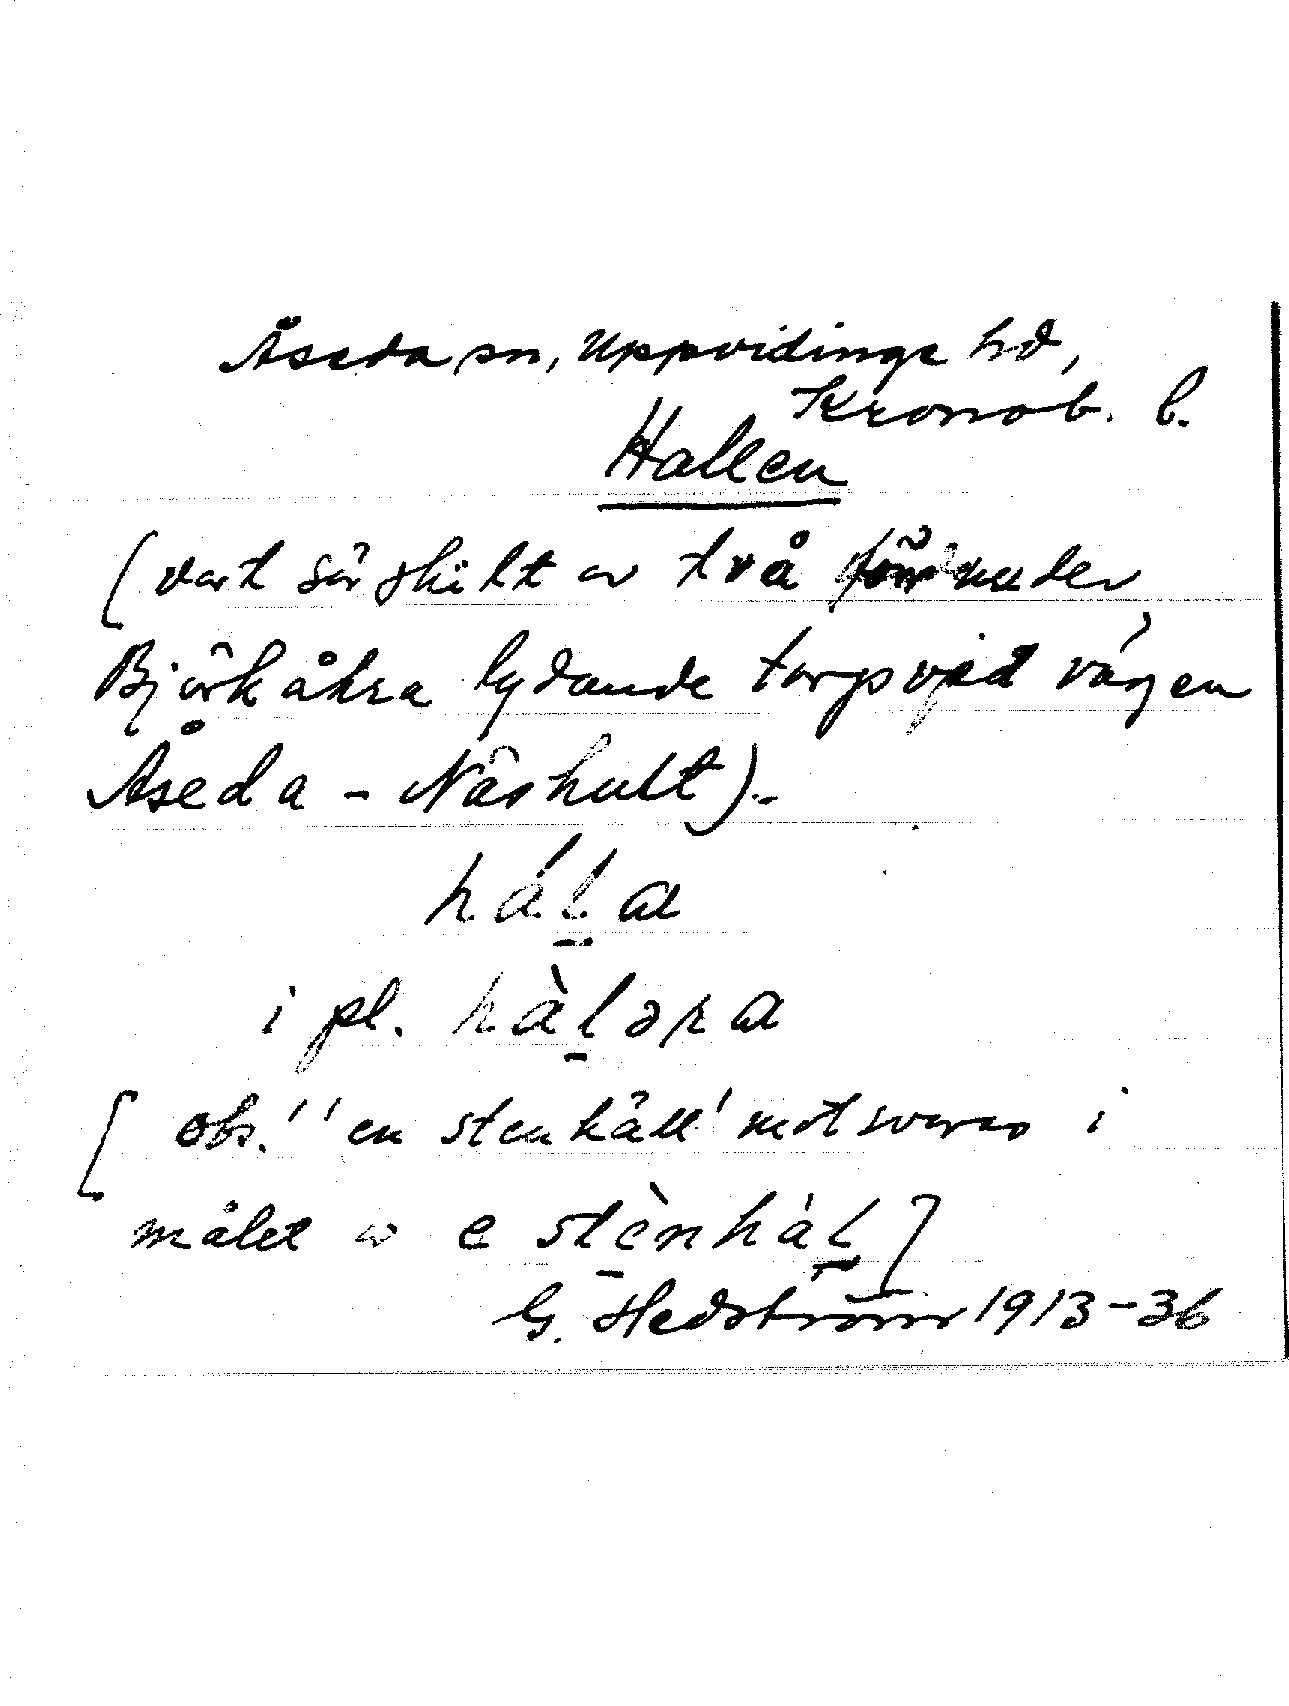 Åseda sn, Uppvidinge hd,
Kronob. l.
Hallen
(vart särskilt av två för under
Björkåkra lydande torp vid vägen
Åseda - Näshult).-
háḻa
i pl. hàḻəra
[obs.! 'en stenhäll' motsvaras i
målet av e stènháḻ]
G. Hedström 1913-36